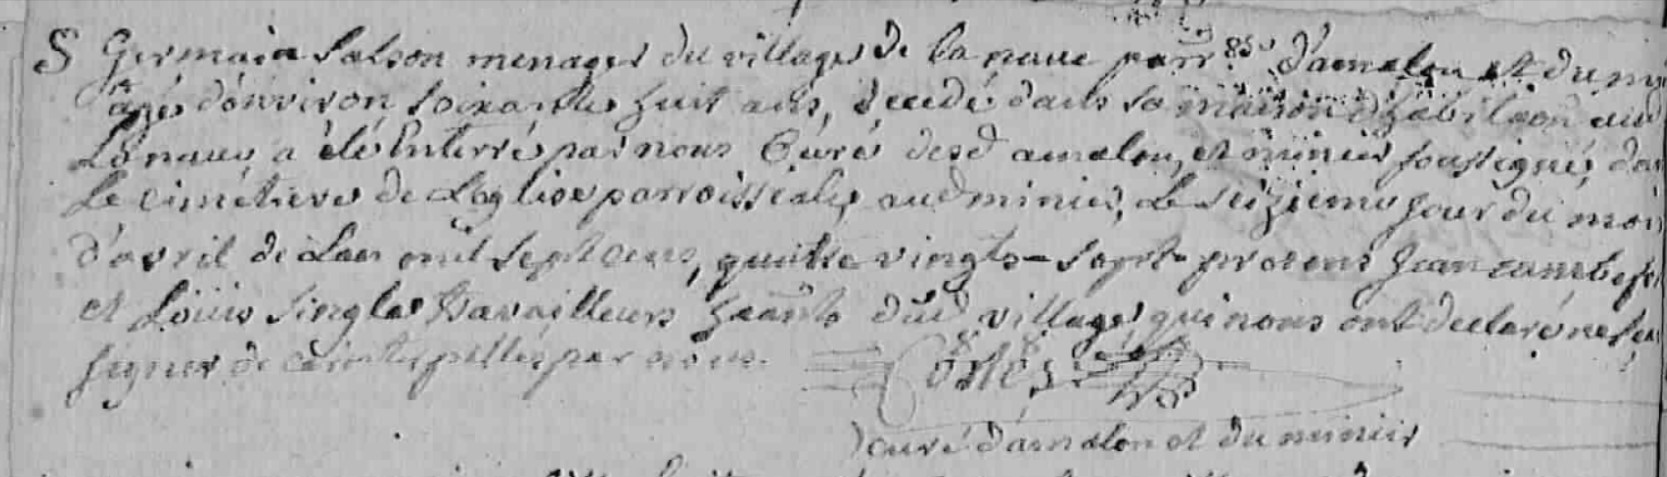 S Germain Salson menager du village de la naue parr.sse d'amelou et du mi
âgé d'environ soixante huit ans, decedé dans sa maison d'habitaon aud
Lanaue a été Enterré par nous Curé desd amelou, et minier soussigné, da
Le cimetiere de Leglise parroissiale, aud minier, Le seizieme Jour du moi
d'avril de Lan mil sept cens, quatre vingts-sept presens Jean
et Loüis Singlar travailleurs hãnts dud village qui nous ont declaré ne
signer de ce interpellés par nous.
Costes
curé d'amelou et du minier